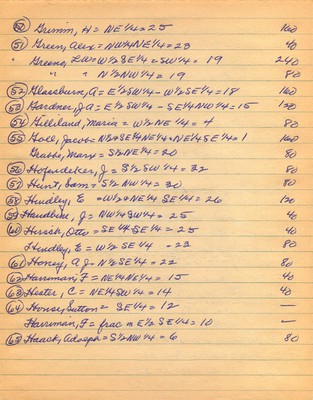 (50) Grimm, H = NE 1/4 = 25 160
(51) Green, Alex = NW1/4NE1/4 = 23 40
" Greene, = W1/2SE1/4 = SW1/4 = 19 240
" " N1/2NW1/4 = 19 80
(52) Glassburn, A = E1/2SW1/4 - W1/2SE1/4 = 18 160
(53) Gardner, J A = E1/2SW1/4 - SE1/4NW1/4 = 15 120
(54) Gilliland, Maria = W1/2NE1/4 = 4 80
(55) Goll, Jacob = N1/2=SE1/4NE1/4 = NE1/4SE1/4 = 1 160
Grabbs, Mary = S1/2NE1/4 = 20 80
(56) Hofendeker, J = S1/2SW1/4 = 32 80
(57) Hunt, Sam = S1/2 NW1/4 = 30 80
(58) Hindley, E = W1/2=NE1/4 SE1/4 = 26 120
(59) J = NW1/4SW1/4 = 25 40
(60) Otto = SE1/4-SE1/4 = 25 40
Hindley, E = W1/2 SE1/4 - 23 80
(61) Honey, A J = N1/2SE1/4 = 22 80
(62) Harriman, F = NE1/4NE1/4 = 15 40
(63) Hester, C = NE1/4SW1/4 = 14 40
(64) Sutton = SE1/4 = 12 —
Harriman, F = frac in E1/2 SE1/4 = 10 —
(65) Haack, Adolph = S1/2NW1/4 = 6 80